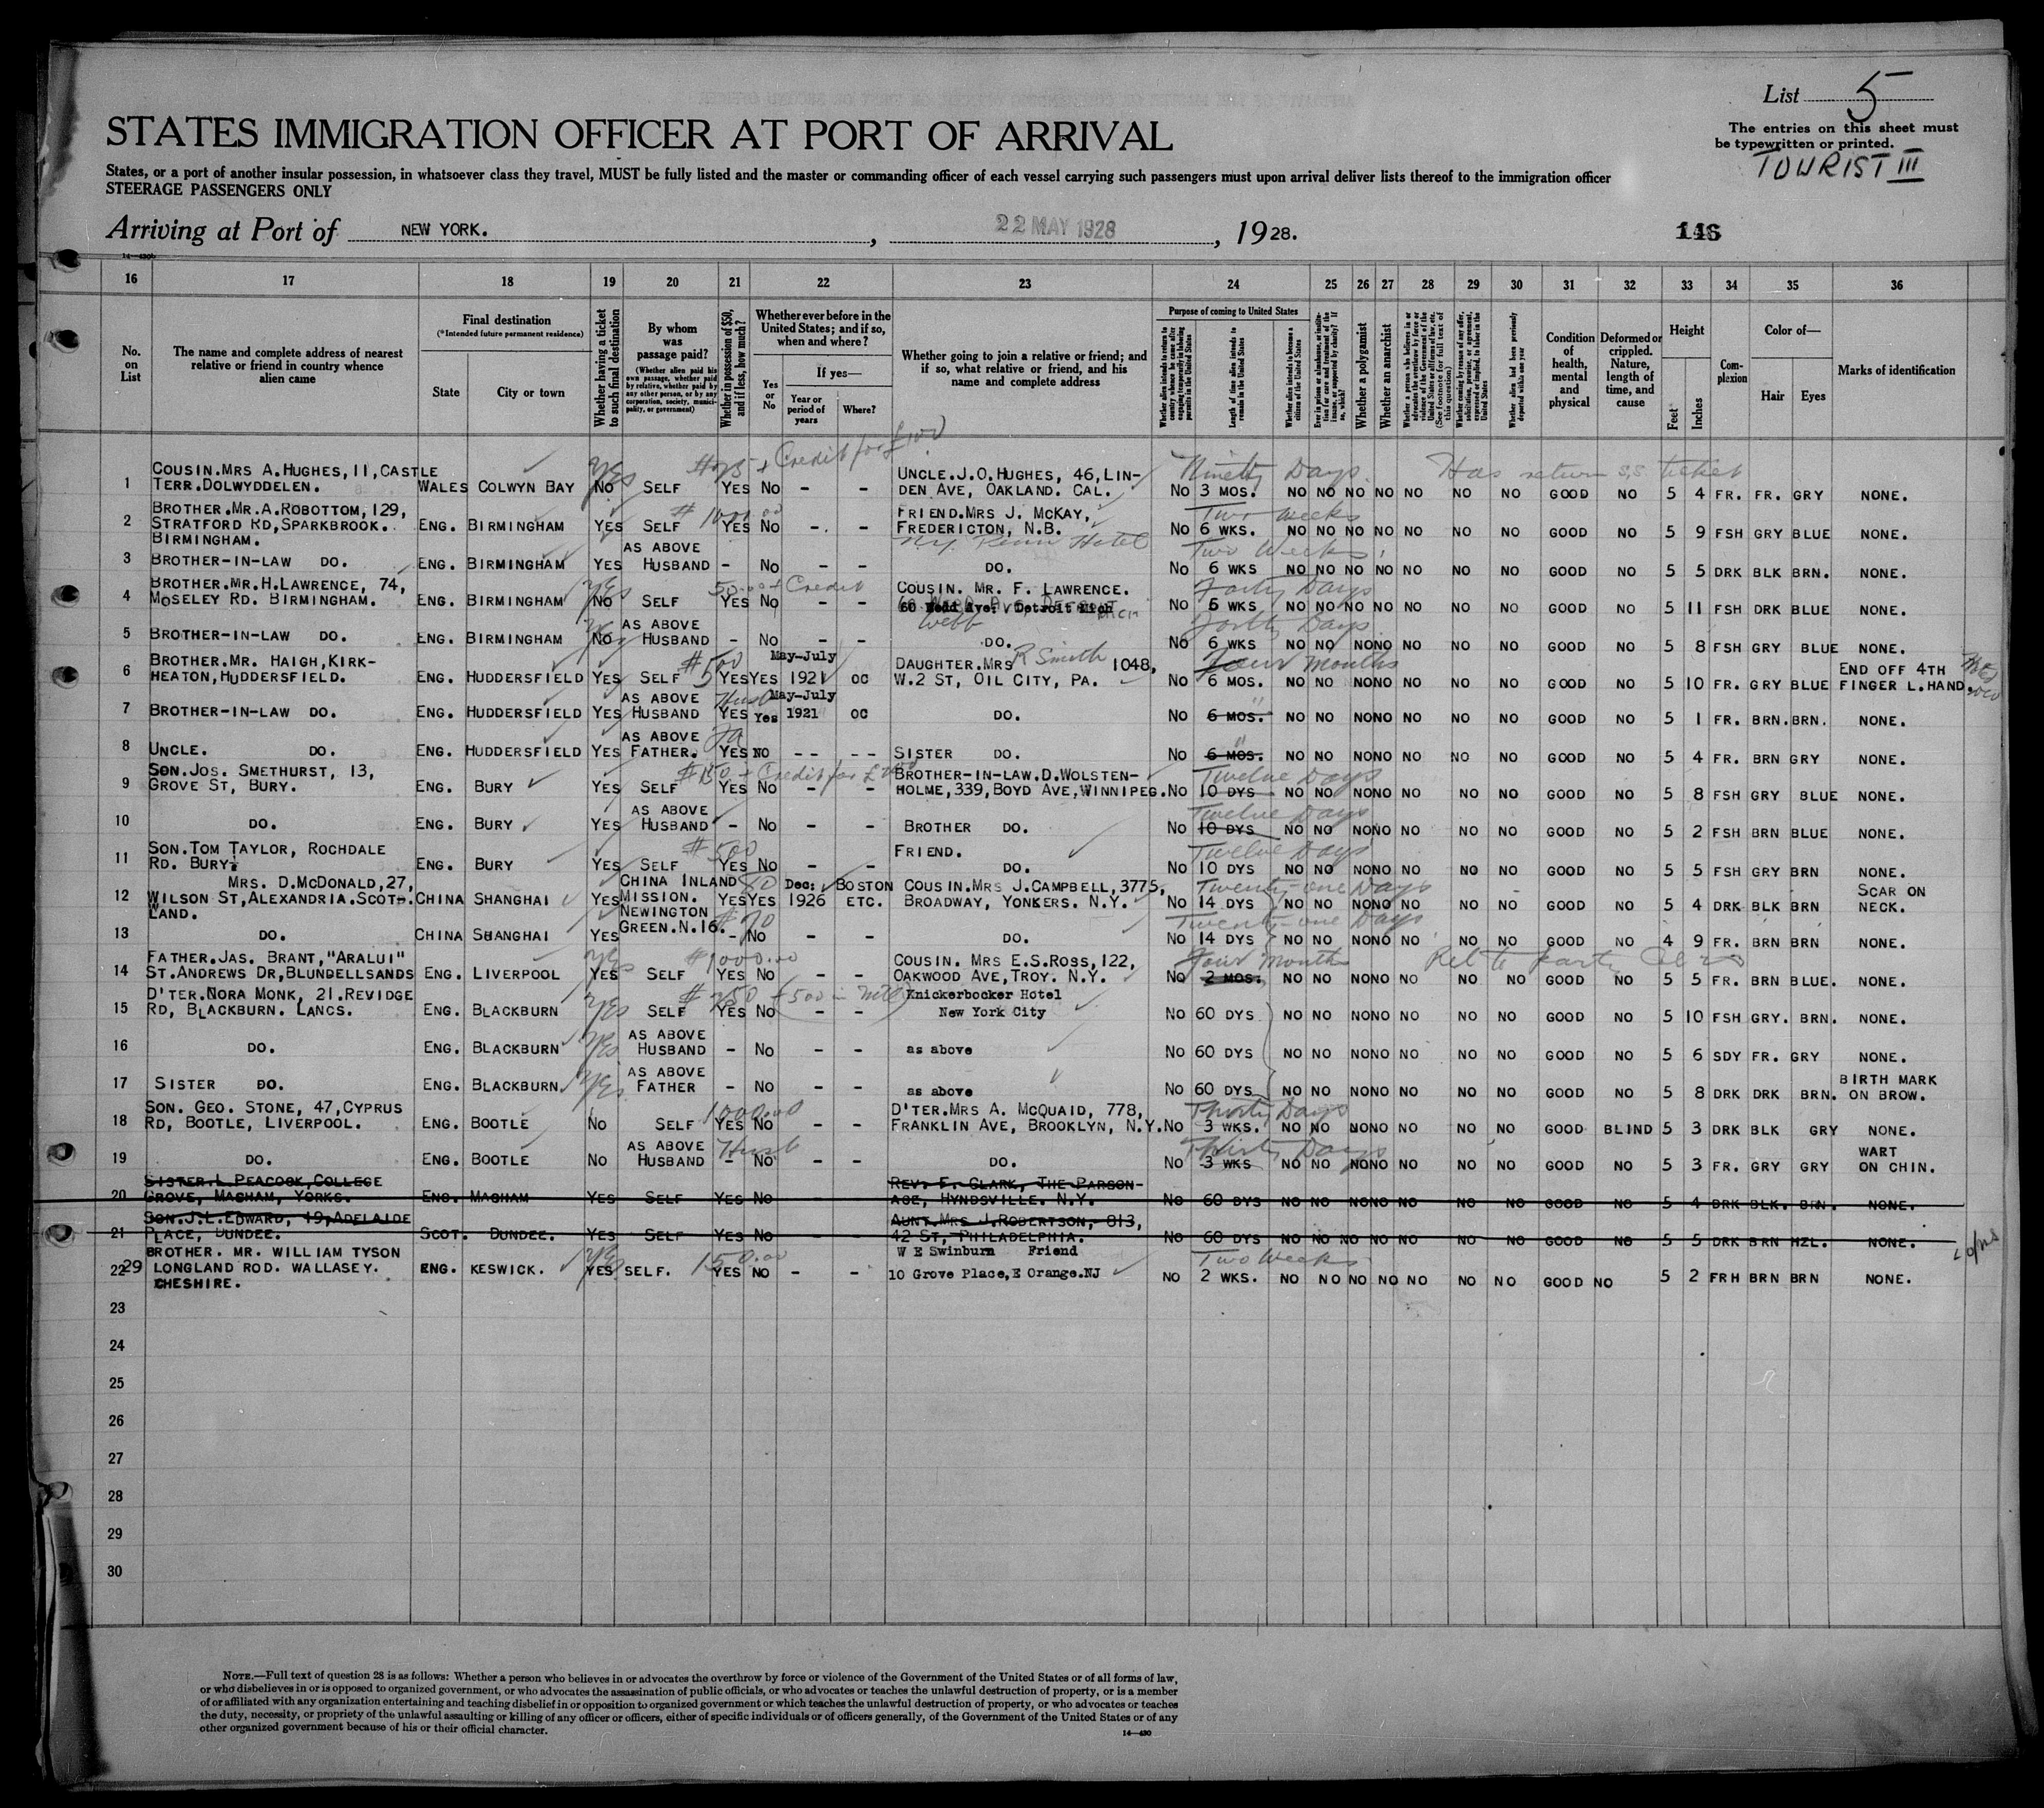 List 5
The entries on this sheet must
be typewritten or printed.
TOURIST III
STATES IMMIGRATION OFFICER AT PORT OF ARRIVAL
States, or a port of another insular possession, in whatsoever class they travel, MUST be fully listed and the master or commanding officer of each vessel carrying such passengers must upon arrival deliver lists thereof to the immigration officer
STEERAGE PASSENGERS ONLY
Arriving at Port of NEW YORK. , 22 MAY 1928 , 1928.
16 17 18 19 20 21 22 23 24 25 26 27 28 29 30 31 32 33 34 35 36
No. on List
The name and complete address of nearest relative or friend in country whence alien came
Final destination
(*Intended future permanent residence)
State City or town
Whether having a ticket to such final destination
By whom was passage paid?
(Whether alien paid his own passage, whether paid by relative, whether paid by any other person, or by any corporation, society, municipality, or government)
Whether in possession of $50, and if less, how much?
Whether ever before in the United States; and if so, when and where?
Yes or No
If yes—
Year or period of years
Where?
Whether going to join a relative or friend; and if so, what relative or friend, and his name and complete address
Purpose of coming to United States
Length of time alien intends to remain in the United States
Whether alien intends to become a citizen of the United States
Whether a polygamist
Whether an anarchist
Condition of health, mental and physical
Deformed or crippled. Nature, length of time, and cause
Height
Feet Inches
Complexion
Color of—
Hair Eyes
Marks of identification
$75 + Credit for £100
COUSIN.MRS A.HUGHES, 11, CASTLE Yes UNCLE.J.O.HUGHES, 46, LIN- Ninety Days. Has return S.S. ticket
1 TERR.DOLWYDDELEN. WALES COLWYN BAY NO SELF YES NO - - DEN AVE, OAKLAND. CAL. NO 3 MOS. NO NO NO NO NO NO NO GOOD NO 5 4 FR. FR. GRY NONE.
BROTHER.MR.A.ROBOTTOM, 129, $1000.00 FRIEND.MRS J. MCKAY, Two weeks
2 STRATFORD RD, SPARKBROOK. ENG. BIRMINGHAM YES SELF YES NO - - FREDERICTON, N.B. NO 6 WKS. NO NO NO NO NO NO NO GOOD NO 5 9 FSH GRY BLUE NONE.
BIRMINGHAM. AS ABOVE Hotel Two Weeks
3 BROTHER-IN-LAW DO. ENG. BIRMINGHAM YES HUSBAND - NO - - DO. NO 6 WKS NO NO NO NO NO NO NO GOOD NO 5 5 DRK BLK BRN. NONE.
BROTHER.MR.H.LAWRENCE, 74, Yes 50.00 + Credit COUSIN. MR. F. LAWRENCE. Forty Days
4 MOSELEY RD. BIRMINGHAM. ENG. BIRMINGHAM NO SELF YES NO - - Detroit Mich NO 6 WKS NO NO NO NO NO NO NO GOOD NO 5 11 FSH DRK BLUE NONE.
Webb
AS ABOVE Forty Days
5 BROTHER-IN-LAW DO. ENG. BIRMINGHAM NO HUSBAND - NO - - DO. NO 6 WKS NO NO NO NO NO NO NO GOOD NO 5 8 FSH GRY BLUE NONE.
BROTHER.MR. HAIGH, KIRK- $500 May-July DAUGHTER.MRS R Smith 1048, Four months END OFF 4TH
6 HEATON, HUDDERSFIELD. ENG. HUDDERSFIELD YES SELF YES YES 1921 OC W.2 ST, OIL CITY, PA. NO 6 MOS. NO NO NO NO NO NO NO GOOD NO 5 10 FR. GRY BLUE FINGER L.HAND.
AS ABOVE Husb May-July
7 BROTHER-IN-LAW DO. ENG. HUDDERSFIELD YES HUSBAND YES Yes 1921 OC DO. NO 6 MOS. NO NO NO NO NO NO NO GOOD NO 5 1 FR. BRN. BRN. NONE.
AS ABOVE Fa
8 UNCLE. DO. ENG. HUDDERSFIELD YES FATHER. YES NO - - - - SISTER DO. NO 6 MOS. NO NO NO NO NO NO NO GOOD NO 5 4 FR. BRN GRY NONE.
SON.JOS. SMETHURST, 13, $150 + Credit for BROTHER-IN-LAW.D.WOLSTEN- Twelve Days
9 GROVE ST, BURY. ENG. BURY YES SELF YES NO - - HOLME, 339, BOYD AVE, WINNIPEG. NO 10 DYS NO NO NO NO NO NO NO GOOD NO 5 8 FSH GRY BLUE NONE.
AS ABOVE Twelve Days
10 DO. ENG. BURY YES HUSBAND - NO - - BROTHER DO. NO 10 DYS NO NO NO NO NO NO NO GOOD NO 5 2 FSH BRN BLUE NONE.
SON.TOM TAYLOR, ROCHDALE $500 FRIEND. Twelve Days
11 RD. BURY. ENG. BURY YES SELF YES NO - - DO. NO 10 DYS NO NO NO NO NO NO NO GOOD NO 5 5 FSH GRY BRN NONE.
MRS. D.MCDONALD, 27, CHINA INLAND 80 Dec: BOSTON COUSIN.MRS J.CAMPBELL, 3775, Twenty-one Days SCAR ON
12 WILSON ST, ALEXANDRIA. SCOT- CHINA SHANGHAI YES MISSION. YES YES 1926 ETC. BROADWAY, YONKERS. N.Y. NO 14 DYS NO NO NO NO NO NO NO GOOD NO 5 4 DRK BLK BRN NECK.
LAND. NEWINGTON $70 Twenty-one Days
13 DO. CHINA SHANGHAI YES GREEN.N.16. - NO - - DO. NO 14 DYS NO NO NO NO NO NO NO GOOD NO 4 9 FR. BRN BRN NONE.
FATHER.JAS. BRANT, "ARALUI" Yes $1000.00 COUSIN. MRS E.S.ROSS, 122, Four months
14 ST.ANDREWS DR, BLUNDELLSANDS ENG. LIVERPOOL YES SELF YES NO - - OAKWOOD AVE, TROY. N.Y. NO 2 MOS. NO NO NO NO NO NO NO GOOD NO 5 5 FR. BRN BLUE. NONE.
D'TER.NORA MONK, 21.REVIDGE Knickerbocker Hotel
15 RD, BLACKBURN. LANCS. ENG. BLACKBURN Yes SELF YES NO - - New York City NO 60 DYS NO NO NO NO NO NO NO GOOD NO 5 10 FSH GRY. BRN. NONE.
AS ABOVE
16 DO. ENG. BLACKBURN Yes HUSBAND - NO - - as above NO 60 DYS NO NO NO NO NO NO NO GOOD NO 5 6 SDY FR. GRY NONE.
AS ABOVE BIRTH MARK
17 SISTER DO. ENG. BLACKBURN Yes FATHER - NO - - as above NO 60 DYS NO NO NO NO NO NO NO GOOD NO 5 8 DRK DRK BRN. ON BROW.
SON. GEO. STONE, 47, CYPRUS 1000.00 D'TER.MRS A. MCQUAID, 778, Thirty Days
18 RD, BOOTLE, LIVERPOOL. ENG. BOOTLE NO SELF YES NO - - FRANKLIN AVE, BROOKLYN, N.Y. NO 3 WKS. NO NO NO NO NO NO NO GOOD BLIND 5 3 DRK BLK GRY NONE.
AS ABOVE Husb Thirty Days WART
19 DO. ENG. BOOTLE NO HUSBAND - NO - - DO. NO 3 WKS NO NO NO NO NO NO NO GOOD NO 5 3 FR. GRY GRY ON CHIN.
SISTER.L.PEACOCK, COLLEGE REV. F. CLARK, THE PARSON-
20 GROVE, MASHAM, YORKS. ENG. MASHAM YES SELF YES NO AGE, HYNDSVILLE. N.Y. NO 60 DYS NO NO NO NO NO NO NO GOOD NO 5 4 DRK BLK. BRN. NONE.
SON.J.L.EDWARD, 19, ADELAIDE AUNT.MRS J.ROBERTSON, 813,
21 PLACE, DUNDEE. SCOT. DUNDEE. YES SELF YES NO 42 ST, PHILADELPHIA. NO 60 DYS NO NO NO NO NO NO NO GOOD NO 5 5 DRK BRN HZL. NONE.
BROTHER. MR. WILLIAM TYSON Yes 150.00 W E Swinburn Friend Two Weeks
22 29 LONGLAND ROD. WALLASEY. ENG. KESWICK. YES SELF. YES NO - - 10 Grove Place, E Orange.NJ NO 2 WKS. NO NO NO NO NO NO NO GOOD NO 5 2 FRH BRN BRN NONE.
CHESHIRE.
23
24
25
26
27
28
29
30
NOTE.—Full text of question 28 is as follows: Whether a person who believes in or advocates the overthrow by force or violence of the Government of the United States or of all forms of law,
or who disbelieves in or is opposed to organized government, or who advocates the assassination of public officials, or who advocates or teaches the unlawful destruction of property, or is a member
of or affiliated with any organization entertaining and teaching disbelief in or opposition to organized government or which teaches the unlawful destruction of property, or who advocates or teaches
the duty, necessity, or propriety of the unlawful assaulting or killing of any officer or officers, either of specific individuals or of officers generally, of the Government of the United States or of any
other organized government because of his or their official character.
14—430